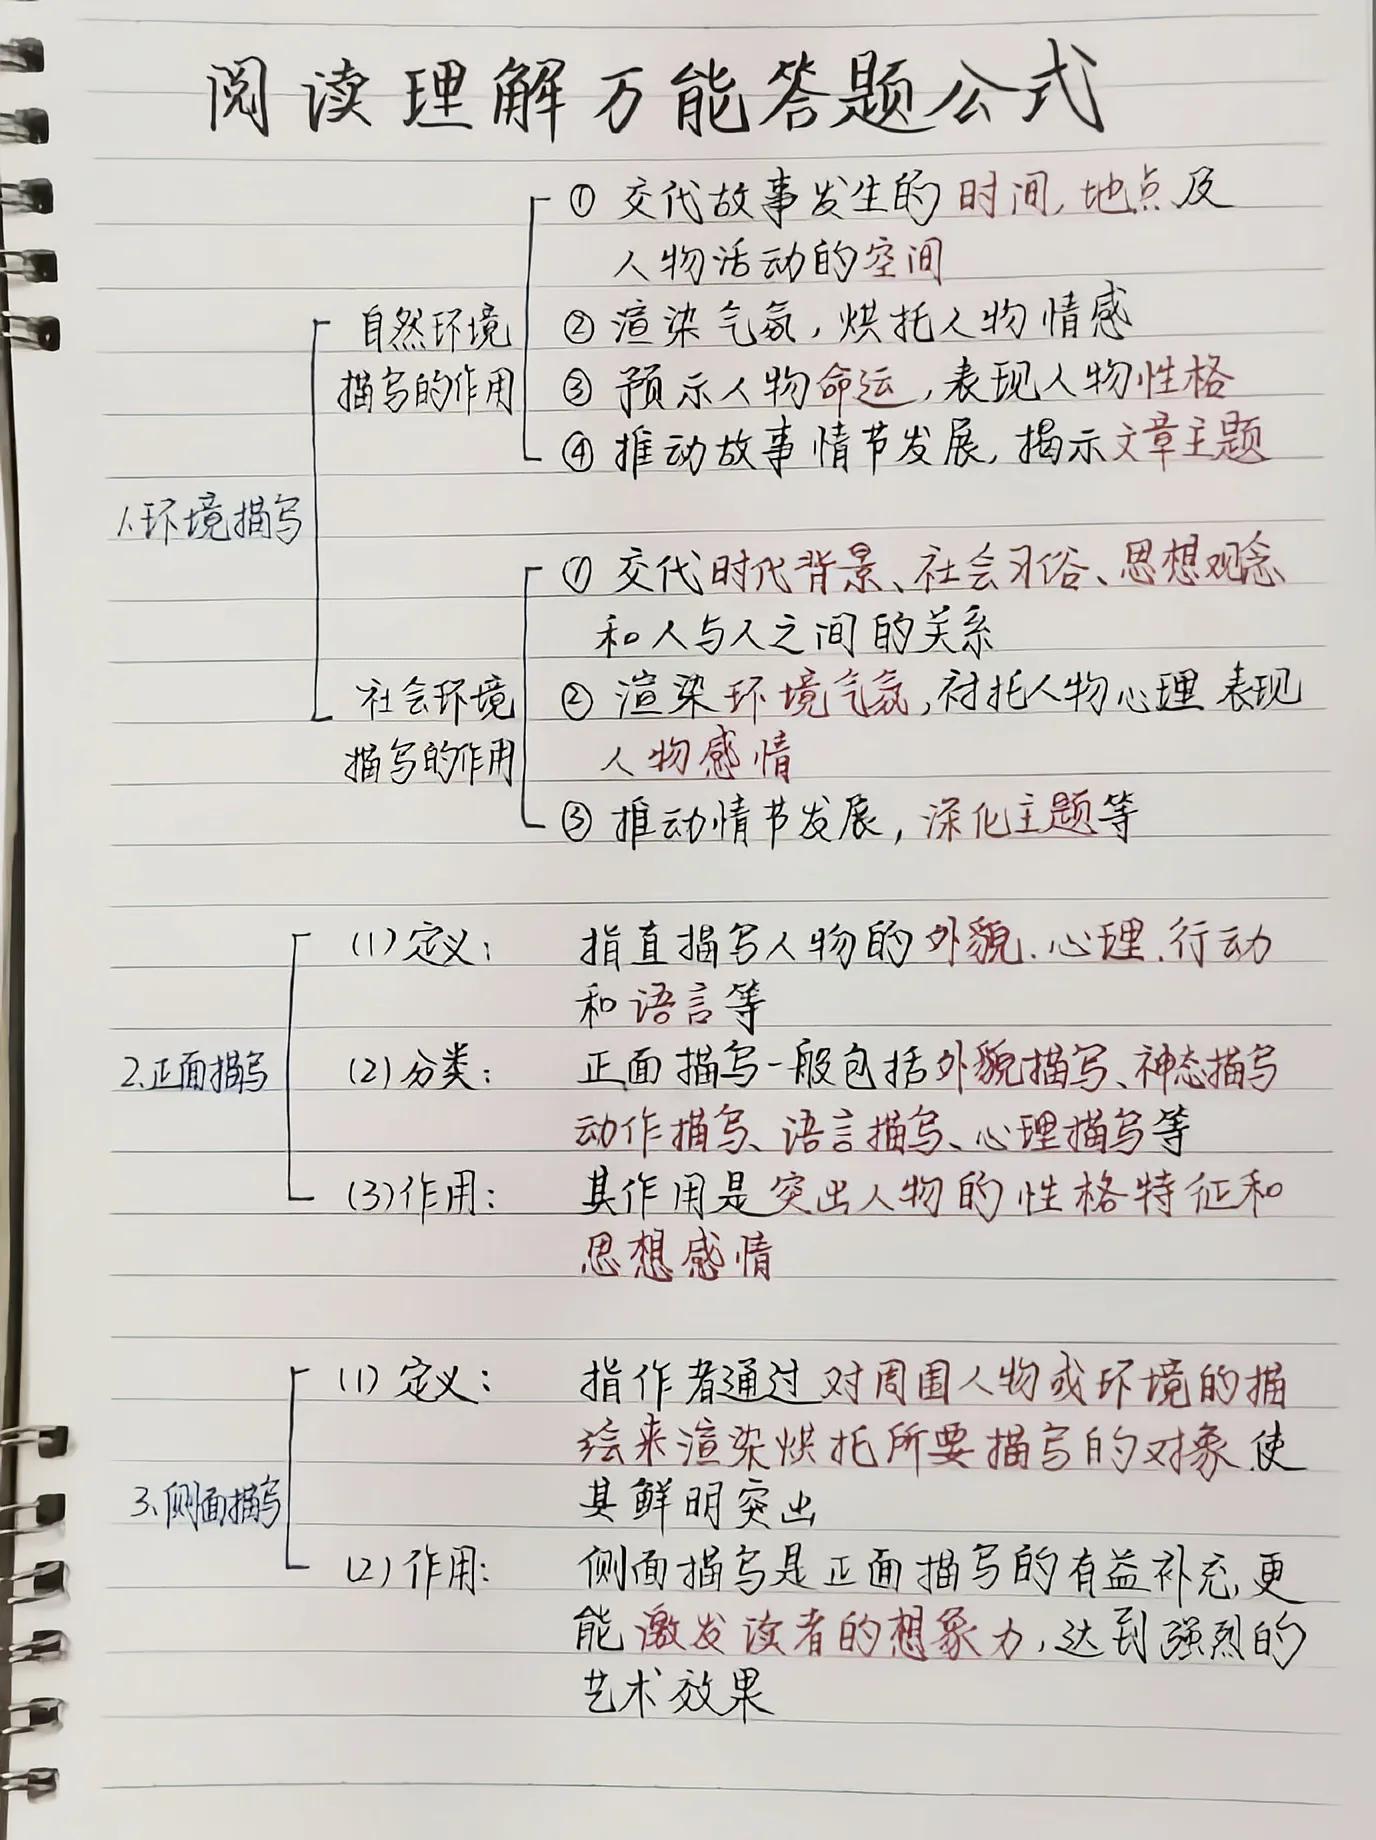 阅读理解万能答题公式
1.环境描写
自然环境
描写的作用
① 交代故事发生的时间、地点及
人物活动的空间
② 渲染气氛,烘托人物情感
③ 预示人物命运,表现人物性格
④ 推动故事情节发展,揭示文章主题
社会环境
描写的作用
① 交代时代背景、社会习俗、思想观念
和人与人之间的关系
② 渲染环境气氛,衬托人物心理 表现
人物感情
③ 推动情节发展,深化主题等
2.正面描写
(1)定义: 指直描写人物的外貌、心理、行动
和语言等
(2)分类: 正面描写一般包括外貌描写、神态描写
动作描写、语言描写、心理描写等
(3)作用: 其作用是突出人物的性格特征和
思想感情
3.侧面描写
(1)定义: 指作者通过对周围人物或环境的描
绘来渲染烘托所要描写的对象,使
其鲜明突出
(2)作用: 侧面描写是正面描写的有益补充,更
能激发读者的想象力,达到强烈的
艺术效果